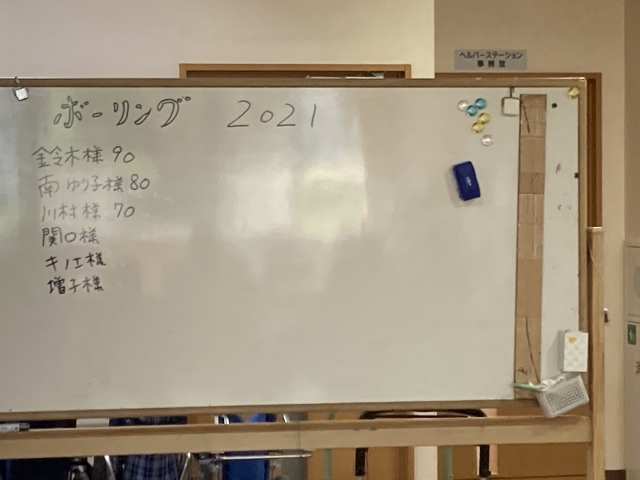 ヘルパーステーション
事務室
ボーリング 2021
鈴木様 90
南ゆり子様 80
川村様 70
関口様
キノエ様
増子様